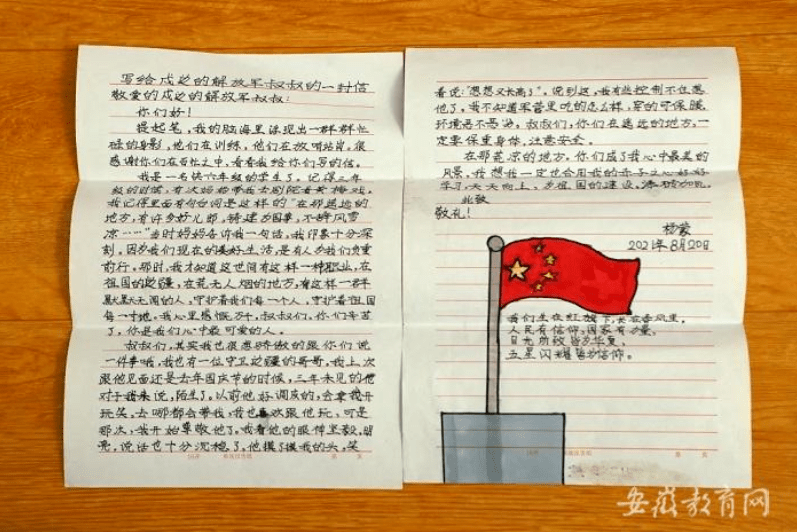 写给戍边的解放军叔叔的一封信
敬爱的戍边的解放军叔叔:
你们好!
提起笔,我的脑海里浮现出一群群忙
碌的身影,他们在训练,他们在放哨站岗。很
感谢你们在百忙之中,看看我给你们写的信。
我是一名快六年级的学生了。记得三年
级的时候,有次妈妈带我去剧院看黄梅戏。
我记得里面有句台词是这样的"在那遥远的
地方,有许多好儿郎,铸建乡国事,不辞风雪
凉……"当时妈妈告诉我一句话,我印象十分深
刻。因为我们现在的美好生活,是有人为我们负重
前行。那时,我才知道这世间有这样一种职业,在
祖国的边疆,在荒无人烟的地方,有这样一群
默默无闻的人,守护着我们每一个人,守护着祖国
每一寸地。我心里感慨万千,叔叔们,你们辛苦
了,你是我们心中最可爱的人。
叔叔们,其实我也很想骄傲的跟你们说
一件事哦,我也有一位守卫边疆的哥哥,我上次
跟他见面还是去年国庆节的时候,三年未见的他
对于我来说,陌生了。以前他好调皮的,会拿我开
玩笑,去哪都会带我,我也喜欢跟他玩,可是
那次,我开始尊敬他了。我看他的眼神坚毅,明
亮,说话也十分沉稳了。他摸了摸我的头,笑
着说:"思想又长高了"。说到这,我有些控制不住想
他了。我不知道军营里吃的怎么样,穿的可保暖,
环境恶不恶劣。叔叔们,你们在遥远的地方,一
定要保重身体,注意安全。
在那荒凉的地方,你们成了我心中最美的
风景。我想我一定也会用我的赤子之心好好
学习,天天向上,为祖国的建设,添砖加瓦。
此致
敬礼!
2021年8月20日
我们生在红旗下,长在春风里。
人民有信仰,国家有力量,
目光所致皆为华夏,
五星闪耀皆为信仰。
安徽教育网